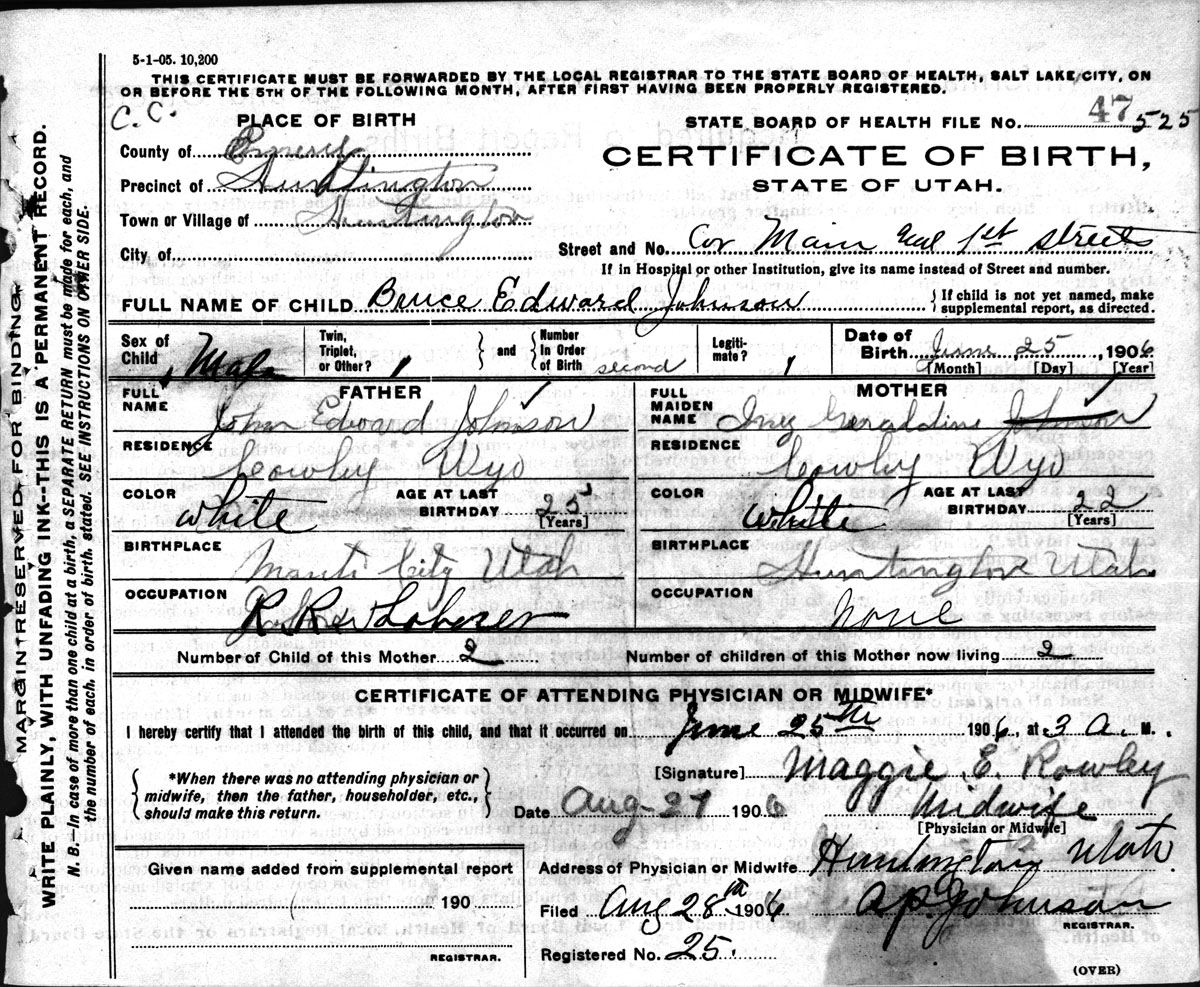 5-1-05. 10,200
THIS CERTIFICATE MUST BE FORWARDED BY THE LOCAL REGISTRAR TO THE STATE BOARD OF HEALTH, SALT LAKE CITY, ON
OR BEFORE THE 5TH OF THE FOLLOWING MONTH, AFTER FIRST HAVING BEEN PROPERLY REGISTERED.
C.C.
PLACE OF BIRTH
STATE BOARD OF HEALTH FILE No. 47 525
County of Emery
CERTIFICATE OF BIRTH,
Precinct of Huntington
STATE OF UTAH.
Town or Village of Huntington
City of
Street and No. Cor Main and 1st streets
If in Hospital or other Institution, give its name instead of Street and number.
FULL NAME OF CHILD Bruce Edward Johnson
{ If child is not yet named, make
supplemental report, as directed.
Sex of Child Male
Twin, Triplet, or Other? 1
} and { Number In Order of Birth second
Legiti-mate? 1
Date of Birth June 25, 1906
[Month] [Day] [Year]
FATHER
FULL NAME John Edward Johnson
RESIDENCE
Cowley Wyo
COLOR White
AGE AT LAST BIRTHDAY 25
[Years]
BIRTHPLACE
Manti City Utah
OCCUPATION
MOTHER
FULL MAIDEN NAME Inez Geraldine Johnson
RESIDENCE
Cowley Wyo
COLOR White
AGE AT LAST BIRTHDAY 22
[Years]
BIRTHPLACE
Huntington Utah
OCCUPATION
None
Number of Child of this Mother 2
Number of children of this Mother now living 2
CERTIFICATE OF ATTENDING PHYSICIAN OR MIDWIFE*
I hereby certify that I attended the birth of this child, and that it occurred on June 25th 1906, at 3 A. M.
{ *When there was no attending physician or
midwife, then the father, householder, etc.,
should make this return. }
[Signature] Maggie E. Rowley
Date Aug-27 1906
Midwife
[Physician or Midwife]
Given name added from supplemental report
190
REGISTRAR.
Address of Physician or Midwife Huntington Utah
Filed Aug 28th 1906
A.P. Johnson
REGISTRAR.
Registered No. 25.
(OVER)
MARGIN RESERVED FOR BINDING.
WRITE PLAINLY, WITH UNFADING INK--THIS IS A PERMANENT RECORD.
N. B.--In case of more than one child at a birth, a SEPARATE RETURN must be made for each, and
the number of each, in order of birth, stated. SEE INSTRUCTIONS ON OTHER SIDE.